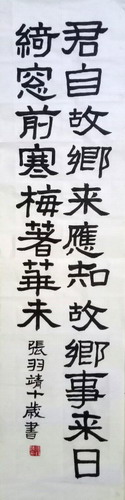 君自故鄉来應知故鄉事来日
綺窓前寒梅著華未
張羽靖十歲書